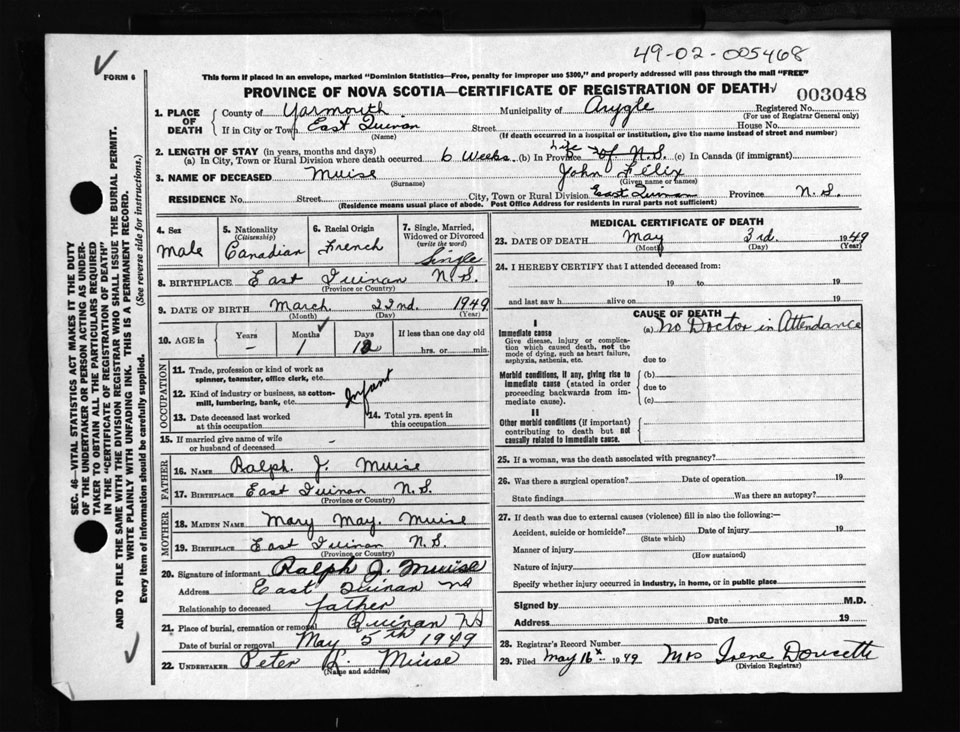 49-02-005468
FORM 6
This form if placed in an envelope, marked "Dominion Statistics—Free, penalty for improper use $300," and properly addressed will pass through the mail "FREE"
PROVINCE OF NOVA SCOTIA—CERTIFICATE OF REGISTRATION OF DEATH
003048
1. PLACE OF DEATH
County of Yarmouth Municipality of Arygle Registered No.
(For use of Registrar General only)
If in City or Town East Quinan Street House No.
(Name) (If death occurred in a hospital or institution, give the name instead of street and number)
2. LENGTH OF STAY (in years, months and days)
(a) In City, Town or Rural Division where death occurred 6 Weeks. (b) In Province life of N.S. (c) In Canada (if immigrant)
3. NAME OF DECEASED Muise John Felix
(Surname) (Given name or names)
RESIDENCE No. Street City, Town or Rural Division East Quinan Province N.S.
(Residence means usual place of abode. Post Office Address for residents in rural parts not sufficient)
SEC. 46—VITAL STATISTICS ACT MAKES IT THE DUTY
OF THE UNDERTAKER OR PERSON ACTING AS UNDER-
TAKER TO OBTAIN ALL THE PARTICULARS REQUIRED
IN THE "CERTIFICATE OF REGISTRATION OF DEATH"
AND TO FILE THE SAME WITH THE DIVISION REGISTRAR WHO SHALL ISSUE THE BURIAL PERMIT.
WRITE PLAINLY WITH UNFADING INK. THIS IS A PERMANENT RECORD.
Every item of information should be carefully supplied. (See reverse side for instructions.)
4. Sex
Male
5. Nationality
(Citizenship)
Canadian
6. Racial Origin
French
7. Single, Married,
Widowed or Divorced
(write the word)
Single
8. BIRTHPLACE East Quinan N.S.
(Province or Country)
9. DATE OF BIRTH March 22nd. 1949
(Month) (Day) (Year)
10. AGE in Years Months Days If less than one day old
– 1 12 hrs. or min.
OCCUPATION
11. Trade, profession or kind of work as
spinner, teamster, office clerk, etc.
12. Kind of industry or business, as cotton-
mill, lumbering, bank, etc.
Infant
13. Date deceased last worked
at this occupation
14. Total yrs. spent in
this occupation
15. If married give name of wife
or husband of deceased –
FATHER
16. NAME Ralph. J. Muise
17. BIRTHPLACE East Quinan N.S.
(Province or Country)
MOTHER
18. MAIDEN NAME Mary May. Muise
19. BIRTHPLACE East Quinan N.S.
(Province or Country)
20. Signature of informant Ralph J. Muise
Address East Quinan NS
Relationship to deceased father
21. Place of burial, cremation or removal Quinan NS
Date of burial or removal May 5th 1949
22. UNDERTAKER Peter L. Muise
(Name and address)
MEDICAL CERTIFICATE OF DEATH
23. DATE OF DEATH May 3rd. 1949
(Month) (Day) (Year)
24. I HEREBY CERTIFY that I attended deceased from:
19 to 19
and last saw h alive on 19
CAUSE OF DEATH
I
Immediate cause
Give disease, injury or complica-
tion which caused death, not the
mode of dying, such as heart failure,
asphyxia, asthenia, etc.
(a) No Doctor in Attendance
due to
Morbid conditions, if any, giving rise to
immediate cause (stated in order
proceeding backwards from im-
mediate cause).
(b)
due to
(c)
II
Other morbid conditions (if important)
contributing to death but not
causally related to immediate cause.
25. If a woman, was the death associated with pregnancy?
26. Was there a surgical operation? Date of operation 19
State findings Was there an autopsy?
27. If death was due to external causes (violence) fill in also the following:—
Accident, suicide or homicide? Date of injury 19
(State which)
Manner of injury
(How sustained)
Nature of injury
Specify whether injury occurred in industry, in home, or in public place
Signed by M.D.
Address Date 19
28. Registrar's Record Number
29. Filed May 16th 1949 Mrs Irene Doucette
(Division Registrar)